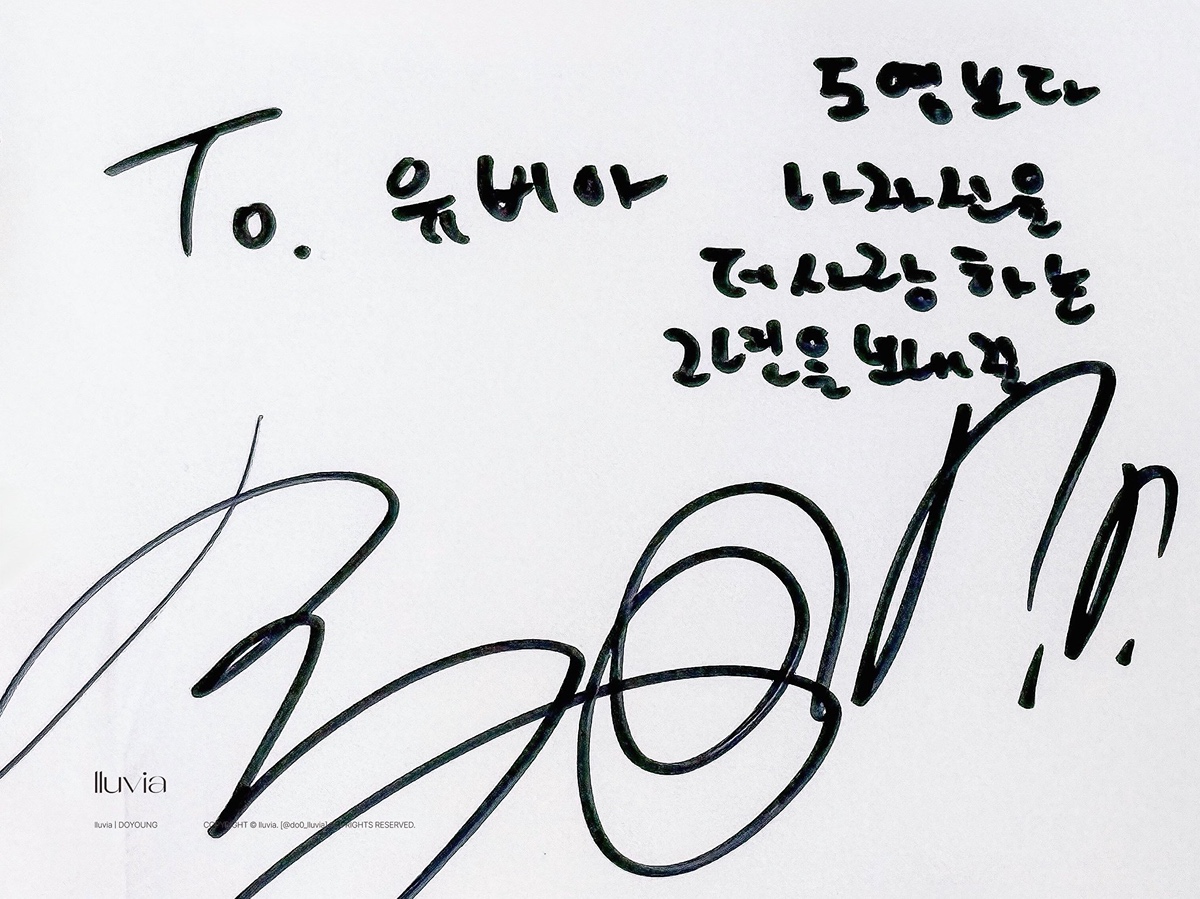 To. 유비아
도영보다
나 자신을
더 사랑하는
보내길
lluvia
lluvia | DOYOUNG
COPYRIGHT © lluvia. [@do0_lluvia] ALL RIGHTS RESERVED.